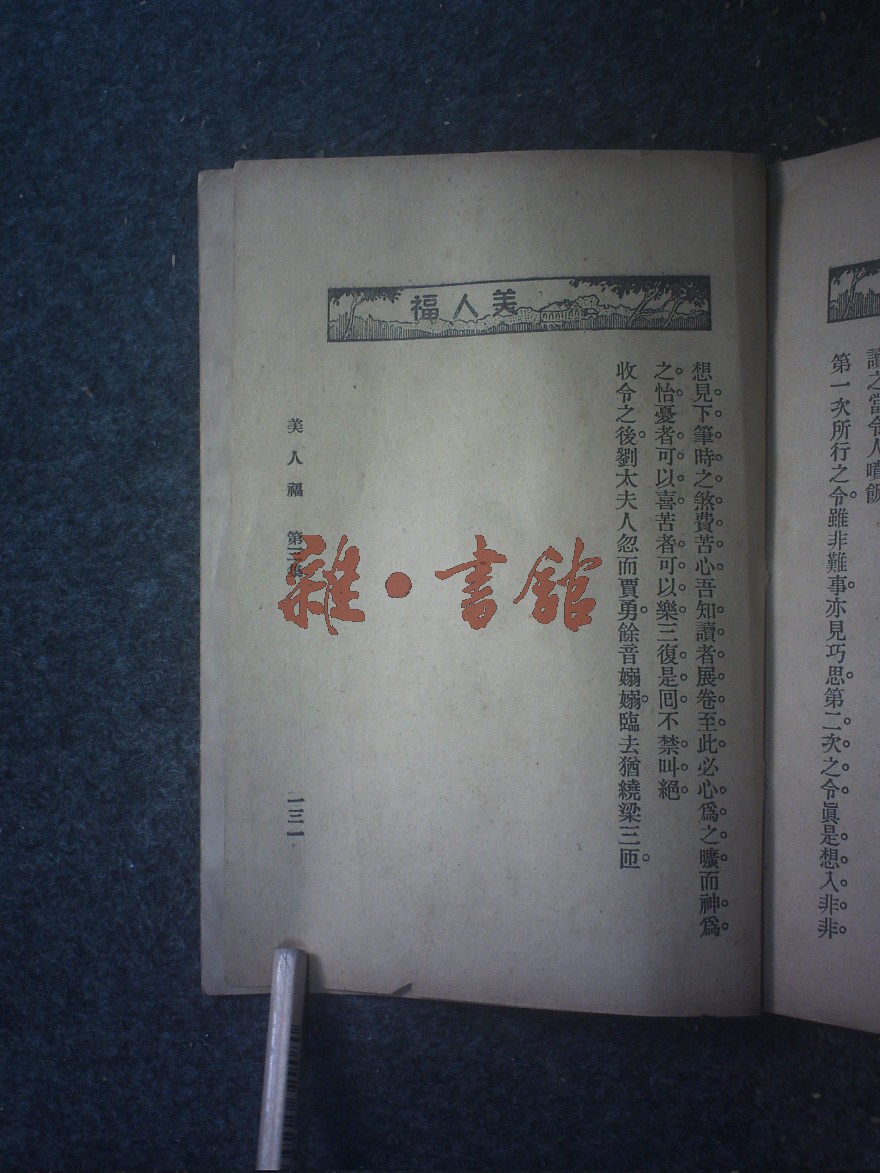 讀之當令人噴飯
第一次所行之令。雖非難事。亦見巧思。第二次之令眞是想入非非
美人福
想見下筆時之煞費苦心吾知讀者展卷至此必心爲之曠而神爲
之怡憂者可以喜苦者可以樂三復是囘不禁叫絕
收令之後。劉太夫人忽而賈勇。餘音嫋嫋。臨去猶繞梁三匝。
美人福 第三集
一三一
雜·書館